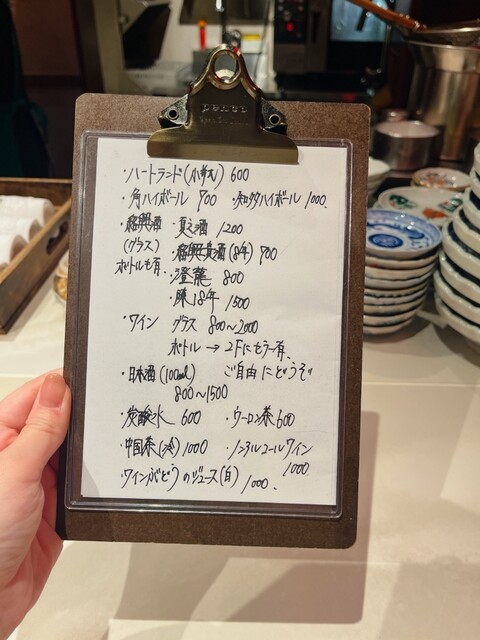 penco
・ハートランド(小瓶) 600
・角ハイボール 700 ・知多ハイボール 1000.
・紹興酒 ・夏之酒 1200
(グラス) ・紹興貴酒(8年) 700
ボトルも有. ・澄龍 800
・陳18年 1500
・ワイン グラス 800～2000
ボトル → 2Fにセラー有.
・日本酒(100ml) ご自由にどうぞ
800～1500
・炭酸水 600 ・ウーロン茶 600
・中国茶(冷) 1000 ・ノンアルコールワイン
1000
・ワインぶどうのジュース(白) 1000.